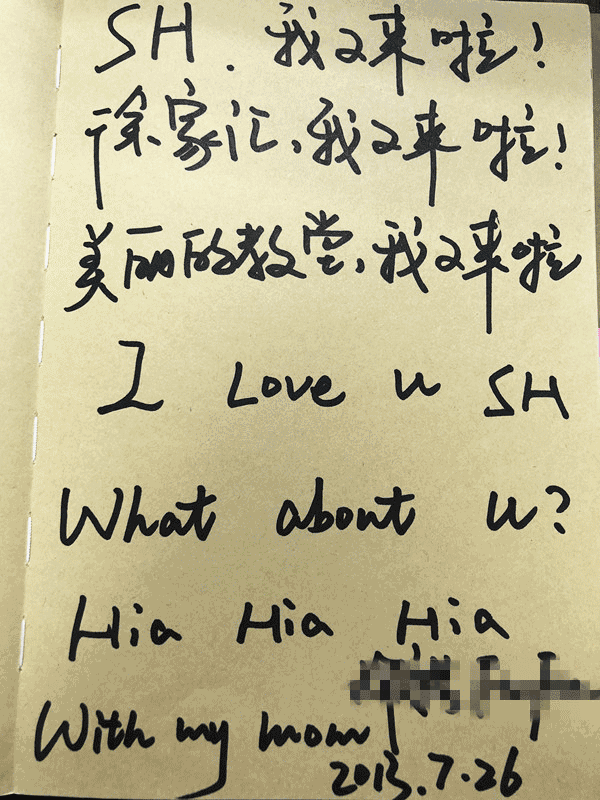 SH. 我又来啦!
徐家汇、我又来啦!
美丽的教堂、我又来啦
I Love u SH
What about u?
Hia Hia Hia
With my mom
2013.7.26